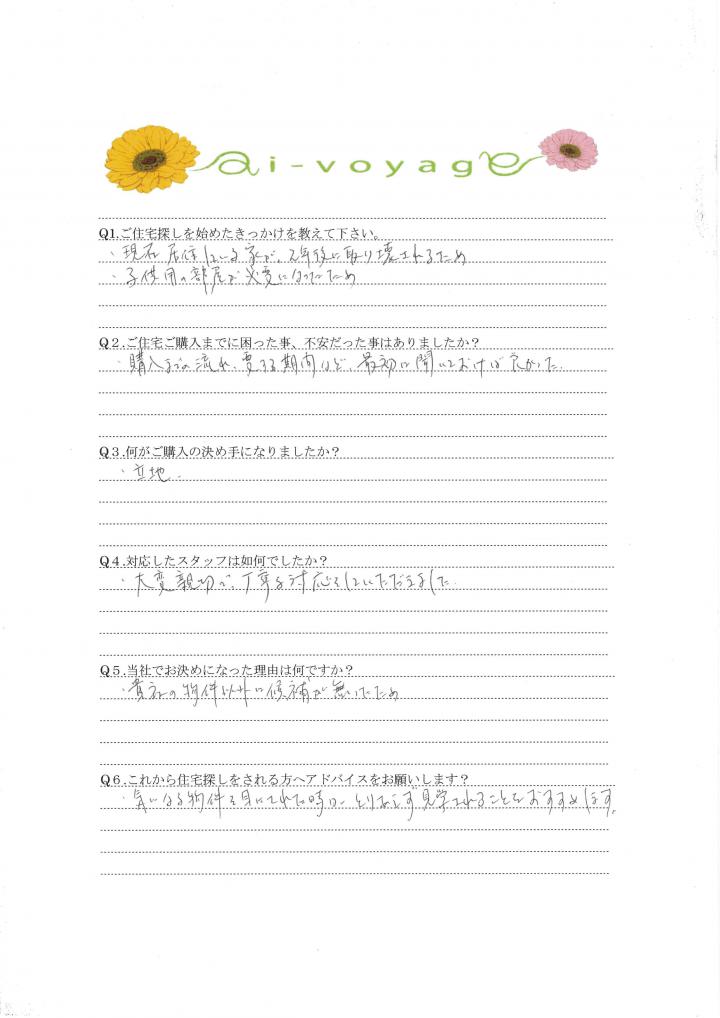 ai-voyage
Q1.ご住宅探しを始めたきっかけを教えて下さい。
・現在居住している家が、2年後に取り壊されるため
・子供用の部屋が必要になったため
Q2.ご住宅ご購入までに困った事、不安だった事はありましたか？
・購入までの流れ、要する期間など、最初に聞いておけば良かった.
Q3.何がご購入の決め手になりましたか？
・立地.
Q4.対応したスタッフは如何でしたか？
・大変親切で、丁寧な対応をしていただきました.
Q5.当社でお決めになった理由は何ですか？
・貴社の物件以外に候補が無いため
Q6.これから住宅探しをされる方へアドバイスをお願いします？
・気になる物件を目にされた時に、とりあえず見学されることをおすすめします。